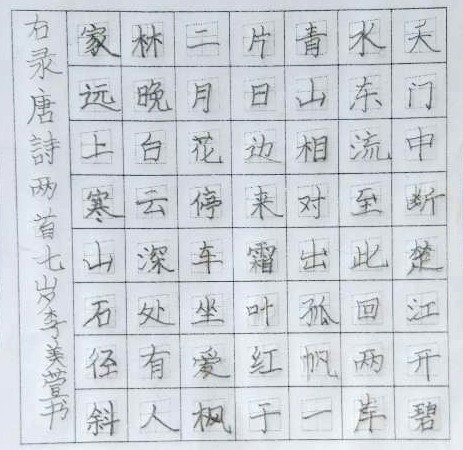 天门中断楚江开碧
水东流至此回两岸
青山相对出孤帆一
片日边来霜叶红于
二月花停车坐爱枫
林晚白云深处有人
家远上寒山石径斜
右录唐詩两首七岁李美萱书